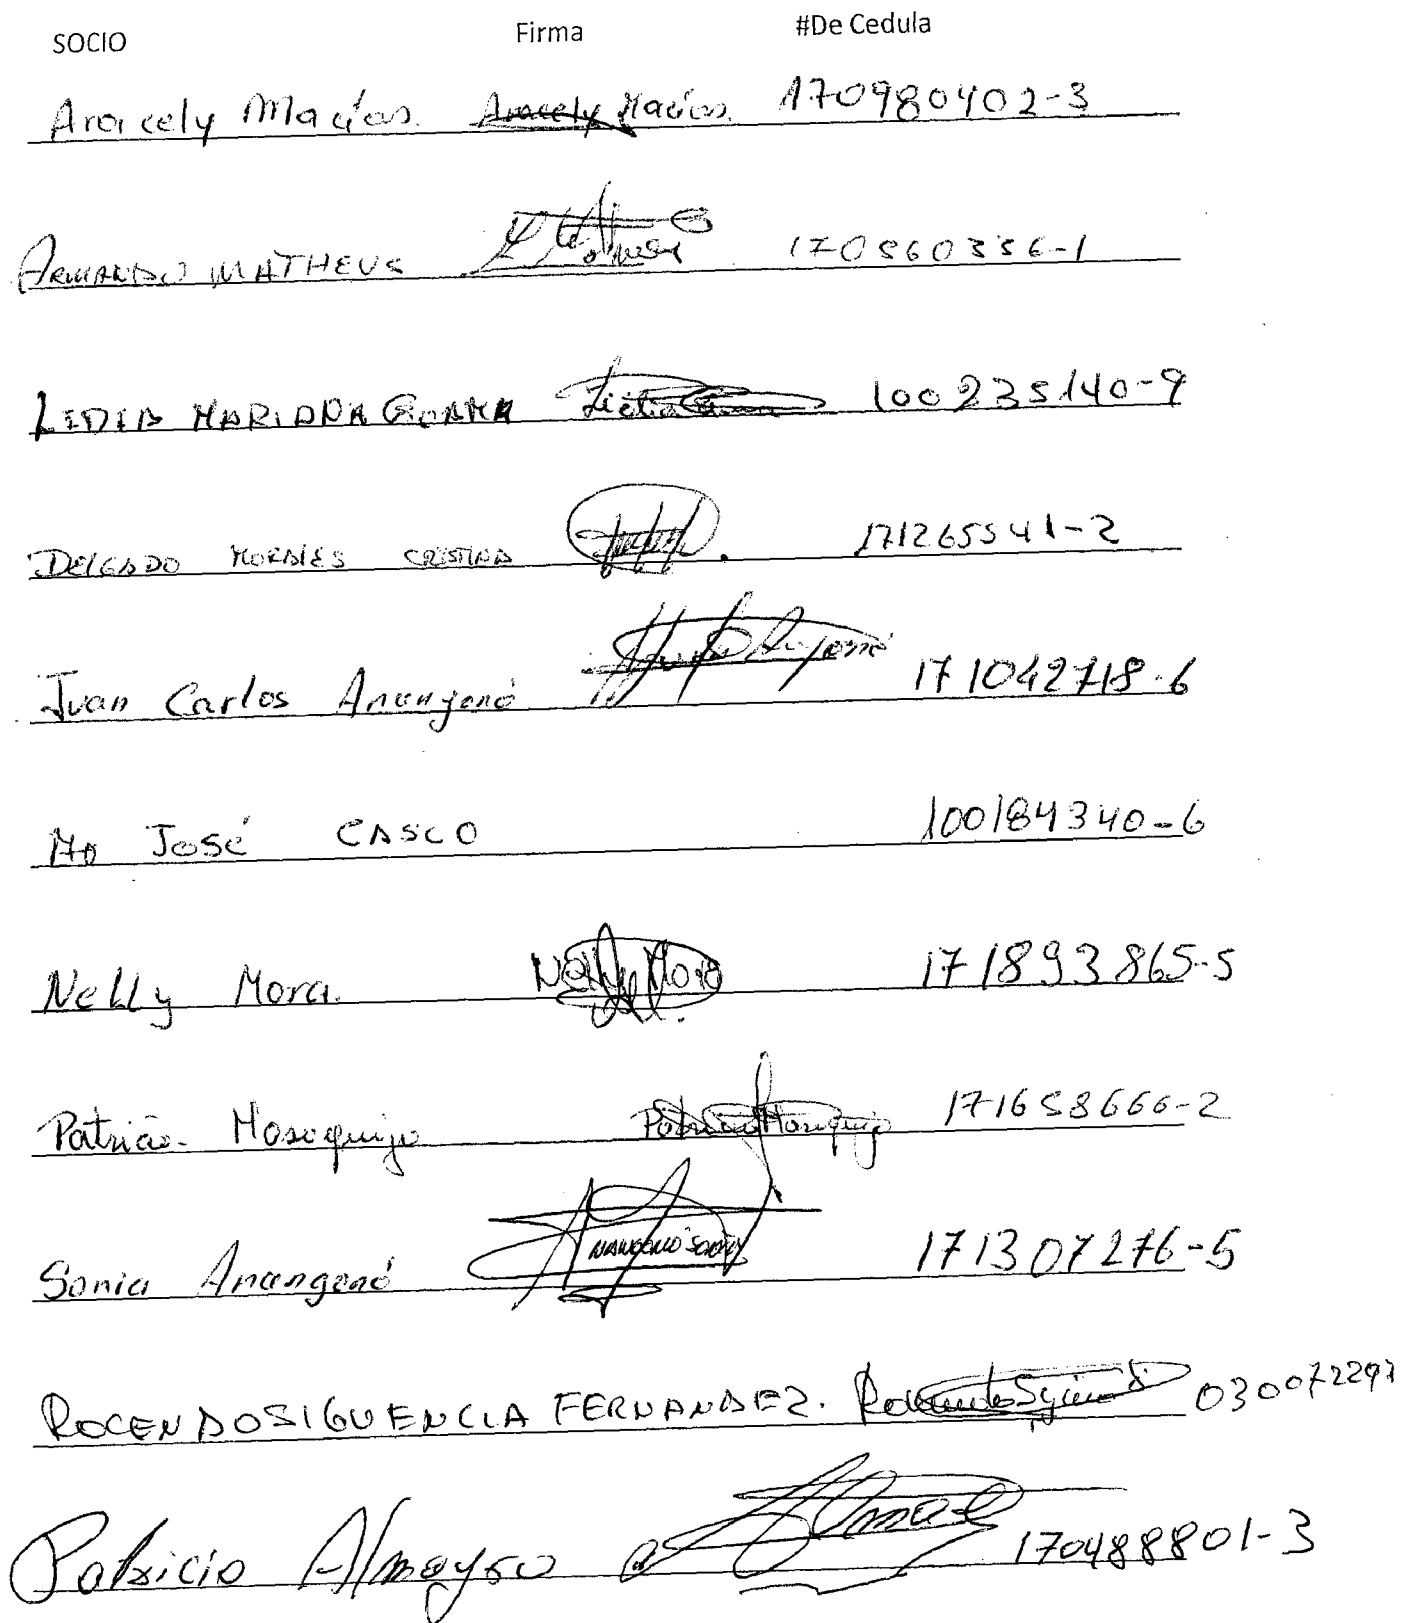 SOCIO Firma #De Cedula
Aracely Macías. Aracely Macías. 170980402-3
ARMANDO MATHEUS 170560356-1
LIDIA MARIANA GUAMA Lidia Guama 100235140-9
DELGADO MORALES CRISTINA 171265541-2
Juan Carlos Anangonó 171042718-6
Ma José CASCO 100184340-6
Nelly Mora. Nelly Mora 171893865-5
Patricio Mosquijo Patricio Mosquijo 171658666-2
Sonia Anangonó ANANGONÓ SONIA 171307276-5
ROCENDO SIGUENCIA FERNANDEZ. Rocendo Siguencia 030072297
Patricio Almayso 170488801-3